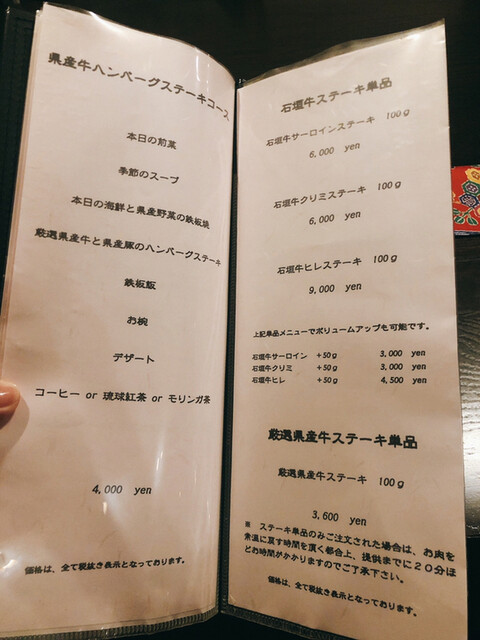 県産牛ハンバーグステーキコース
本日の前菜
季節のスープ
本日の海鮮と県産野菜の鉄板焼
厳選県産牛と県産豚のハンバーグステーキ
鉄板飯
お椀
デザート
コーヒー or 琉球紅茶 or モリンガ茶
4,000 yen
価格は、全て税抜き表示となっております。
石垣牛ステーキ単品
石垣牛サーロインステーキ 100g
6,000 yen
石垣牛クリミステーキ 100g
6,000 yen
石垣牛ヒレステーキ 100g
9,000 yen
上記単品メニューでボリュームアップも可能です。
石垣牛サーロイン +50g 3,000 yen
石垣牛クリミ +50g 3,000 yen
石垣牛ヒレ +50g 4,500 yen
厳選県産牛ステーキ単品
厳選県産牛ステーキ 100g
3,600 yen
※ ステーキ単品のみご注文された場合は、お肉を
常温に戻す時間を頂く都合上、提供までに20分ほ
どお時間がかかりますのでご了承下さい。
価格は、全て税抜き表示となっております。